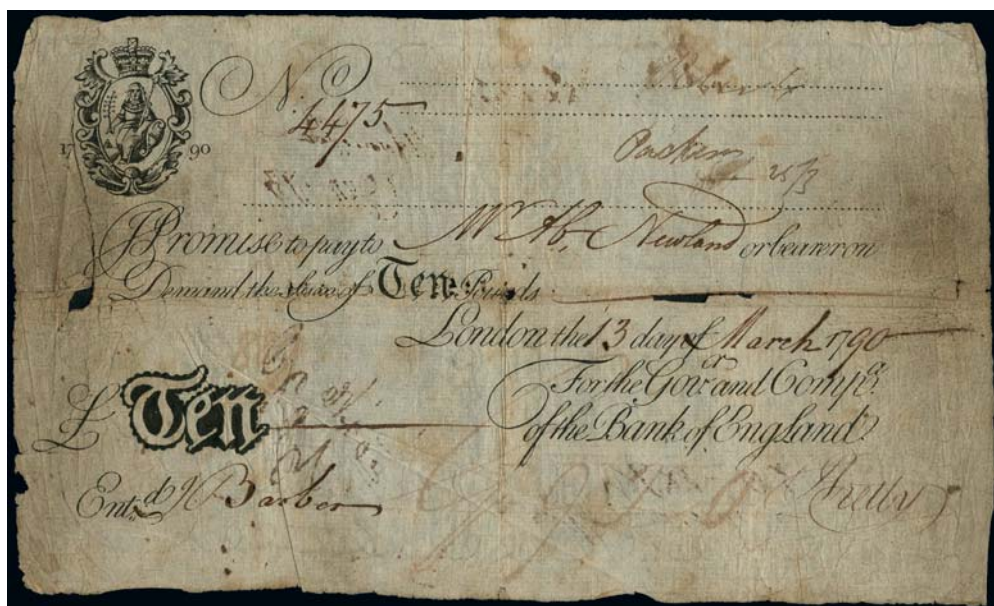 No
4475
17 90
I Promise to pay to Mr. Ab. Newland or bearer on
Demand the Sum of Ten Pounds
London the 13 day of March 1790
For the Govr. and Compa.
of the Bank of England
£ Ten
Entd. J Barber